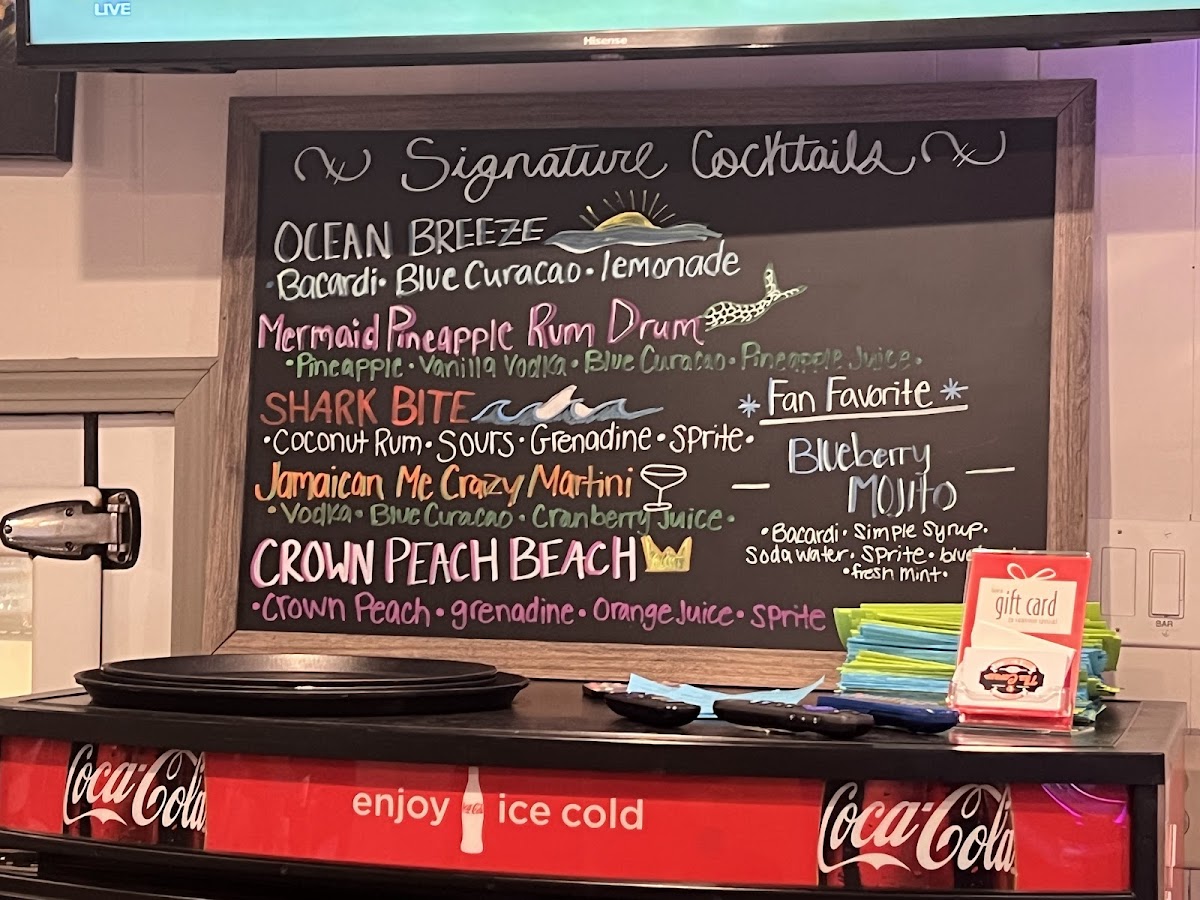 LIVE
Hisense
Signature Cocktails
OCEAN BREEZE
•Bacardi• Blue Curacao • lemonade
Mermaid Pineapple Rum Drum
•Pineapple • Vanilla Vodka • Blue Curacao • Pineapple Juice •
SHARK BITE
•Coconut Rum • Sours • Grenadine • Sprite •
Jamaican Me Crazy Martini
•Vodka • Blue Curacao • Cranberry Juice •
CROWN PEACH BEACH
•Crown Peach • grenadine • Orange Juice • Sprite
* Fan Favorite *
— Blueberry —
Mojito
•Bacardi • Simple Syrup •
Soda water • Sprite •
•fresh mint•
gift card
BAR
Coca-Cola
enjoy
Coca-Cola
ice cold
Coca-Cola